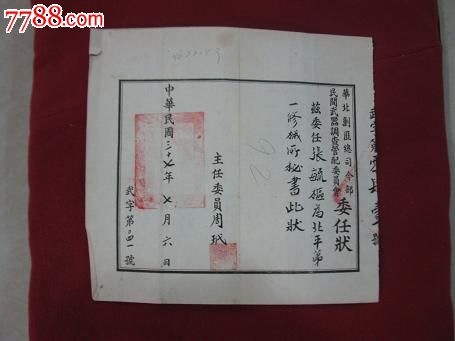 7788.com
華北剿匪總司令部
民間武器調查管配委員會
委任狀
茲委任張毓樞為北平第
一修械所秘書此狀
主任委員周玳
中華民國三十七年七月六日
武字第四一號
92